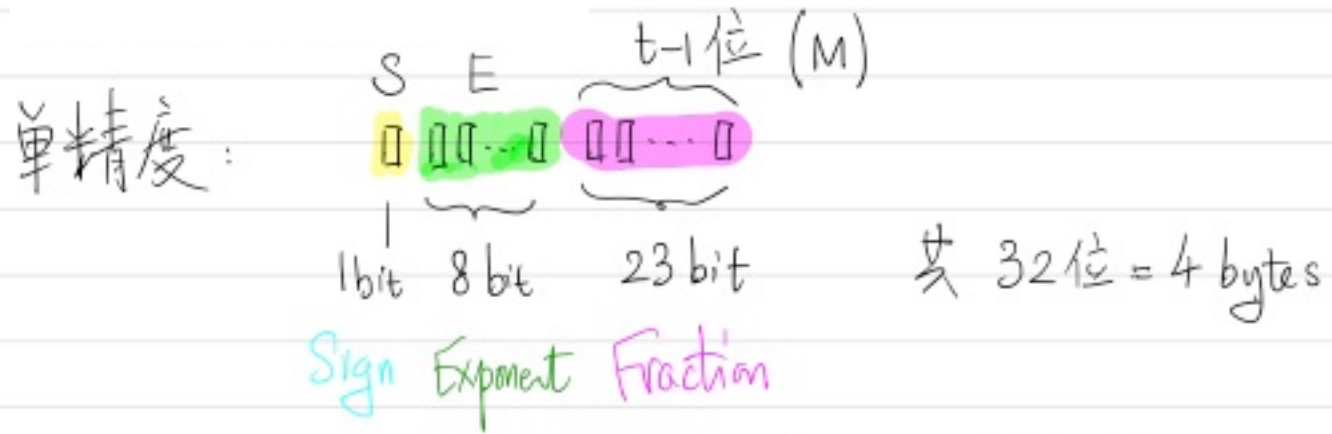 t-1位 (M)
S E
单精度:
1bit 8bit 23bit
共 32位=4 bytes
Sign Exponent Fraction